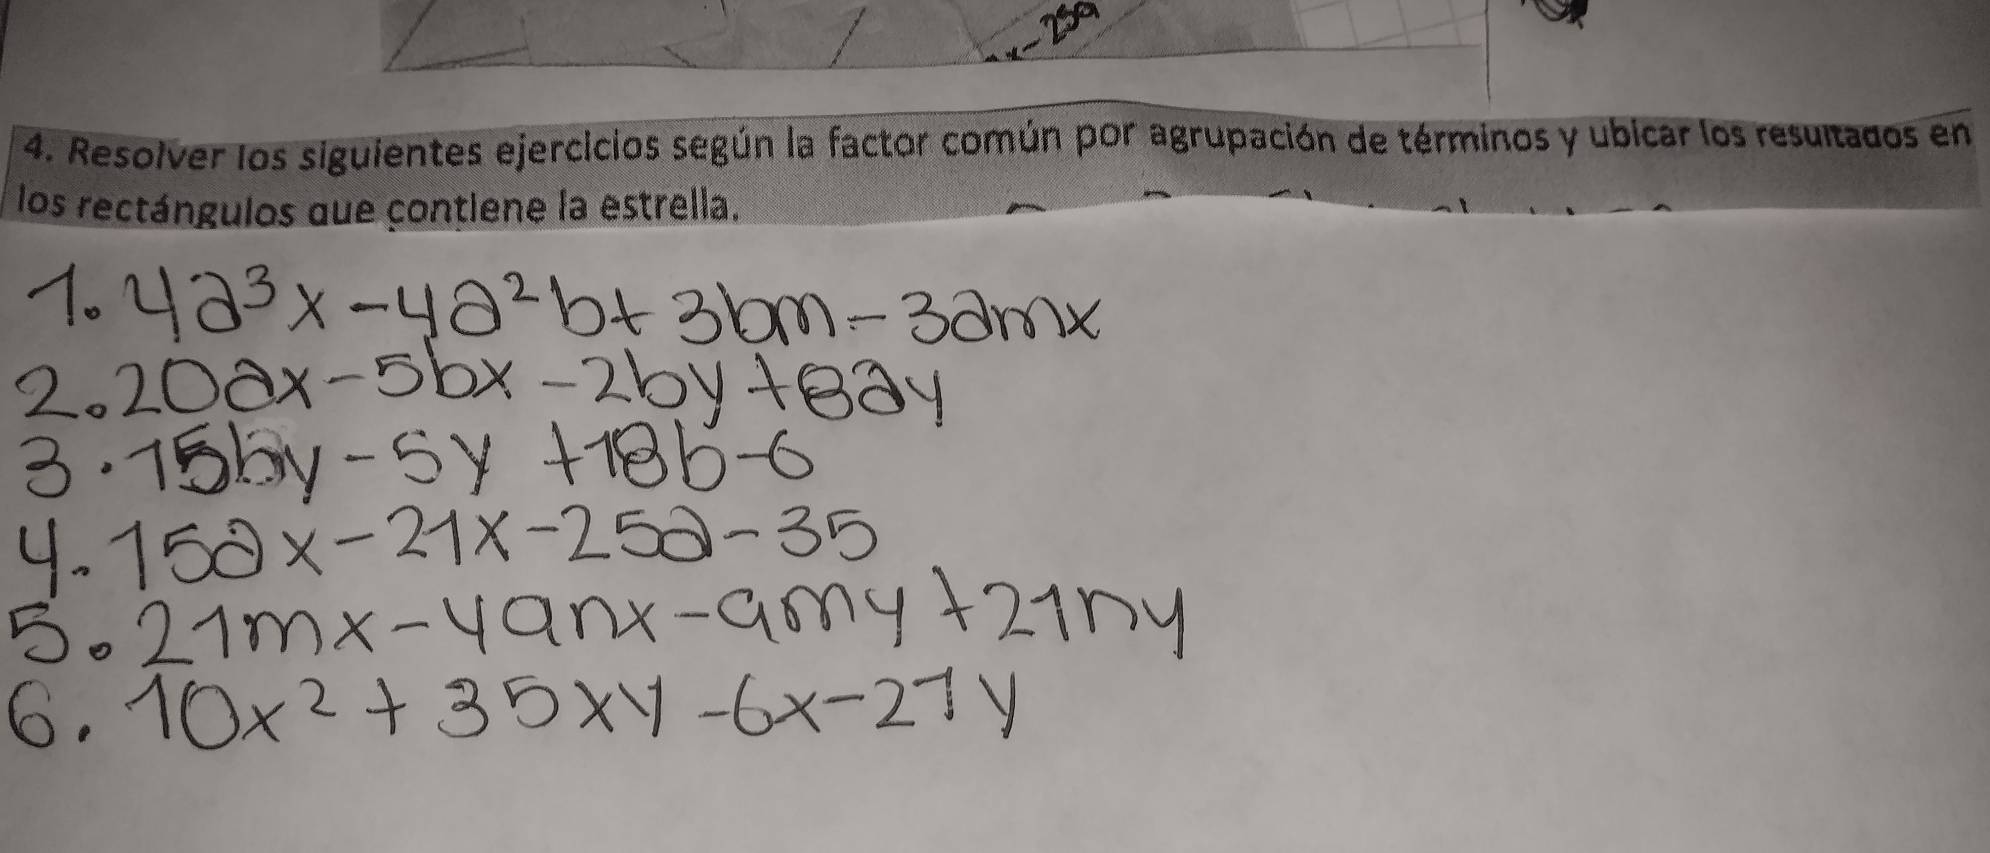 x-25a
4. Resolver los siguientes ejercicios según la factor común por agrupación de términos y ubicar los resultados en
los rectángulos que contiene la estrella.
1. 4a³x-4a²b+3bm-3amx
2. 20ax-5bx-2by+8ay
3. 15by-5y+18b-6
4. 15ax-21x-25a-35
5. 21mx-4anx-amy+21ny
6. 10x²+35xy-6x-21y